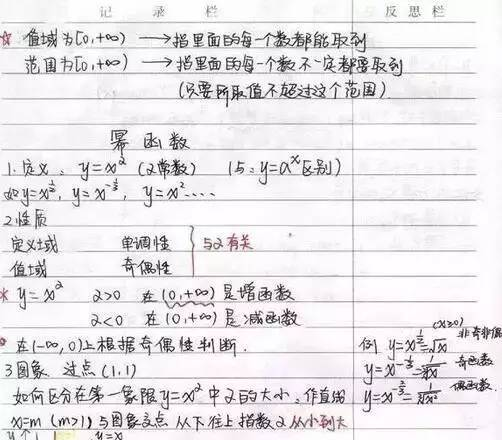 记 录 栏
反 思 栏
☆ 值域为[0,+∞) → 指里面的每一个数都能取到
范围为[0,+∞) → 指里面的每一个数不一定都要取到
(只要所取值不超过这个范围)
幂 函 数
1. 定义: y=x^α (α常数) (与:y=a^x区别)
如y=x^{1/2}, y=x^{-1/3}, y=x^2....
2. 性质
定义域 单调性
值域 奇偶性
与α有关
* y=x^α α>0 在(0,+∞)是增函数
α<0 在(0,+∞)是减函数
在(-∞,0)上根据奇偶性判断.
3 图象 过点(1,1)
如何区分在第一象限y=x^α中α的大小:作直线
x=m (m>1)与图象交点 从下往上指数α从小到大
y=x
(x≥0)
例. y=x^{1/2}=√x 非奇非偶
y=x^{-1/3}= 奇函数
y=x^{-2/3}= 偶函数